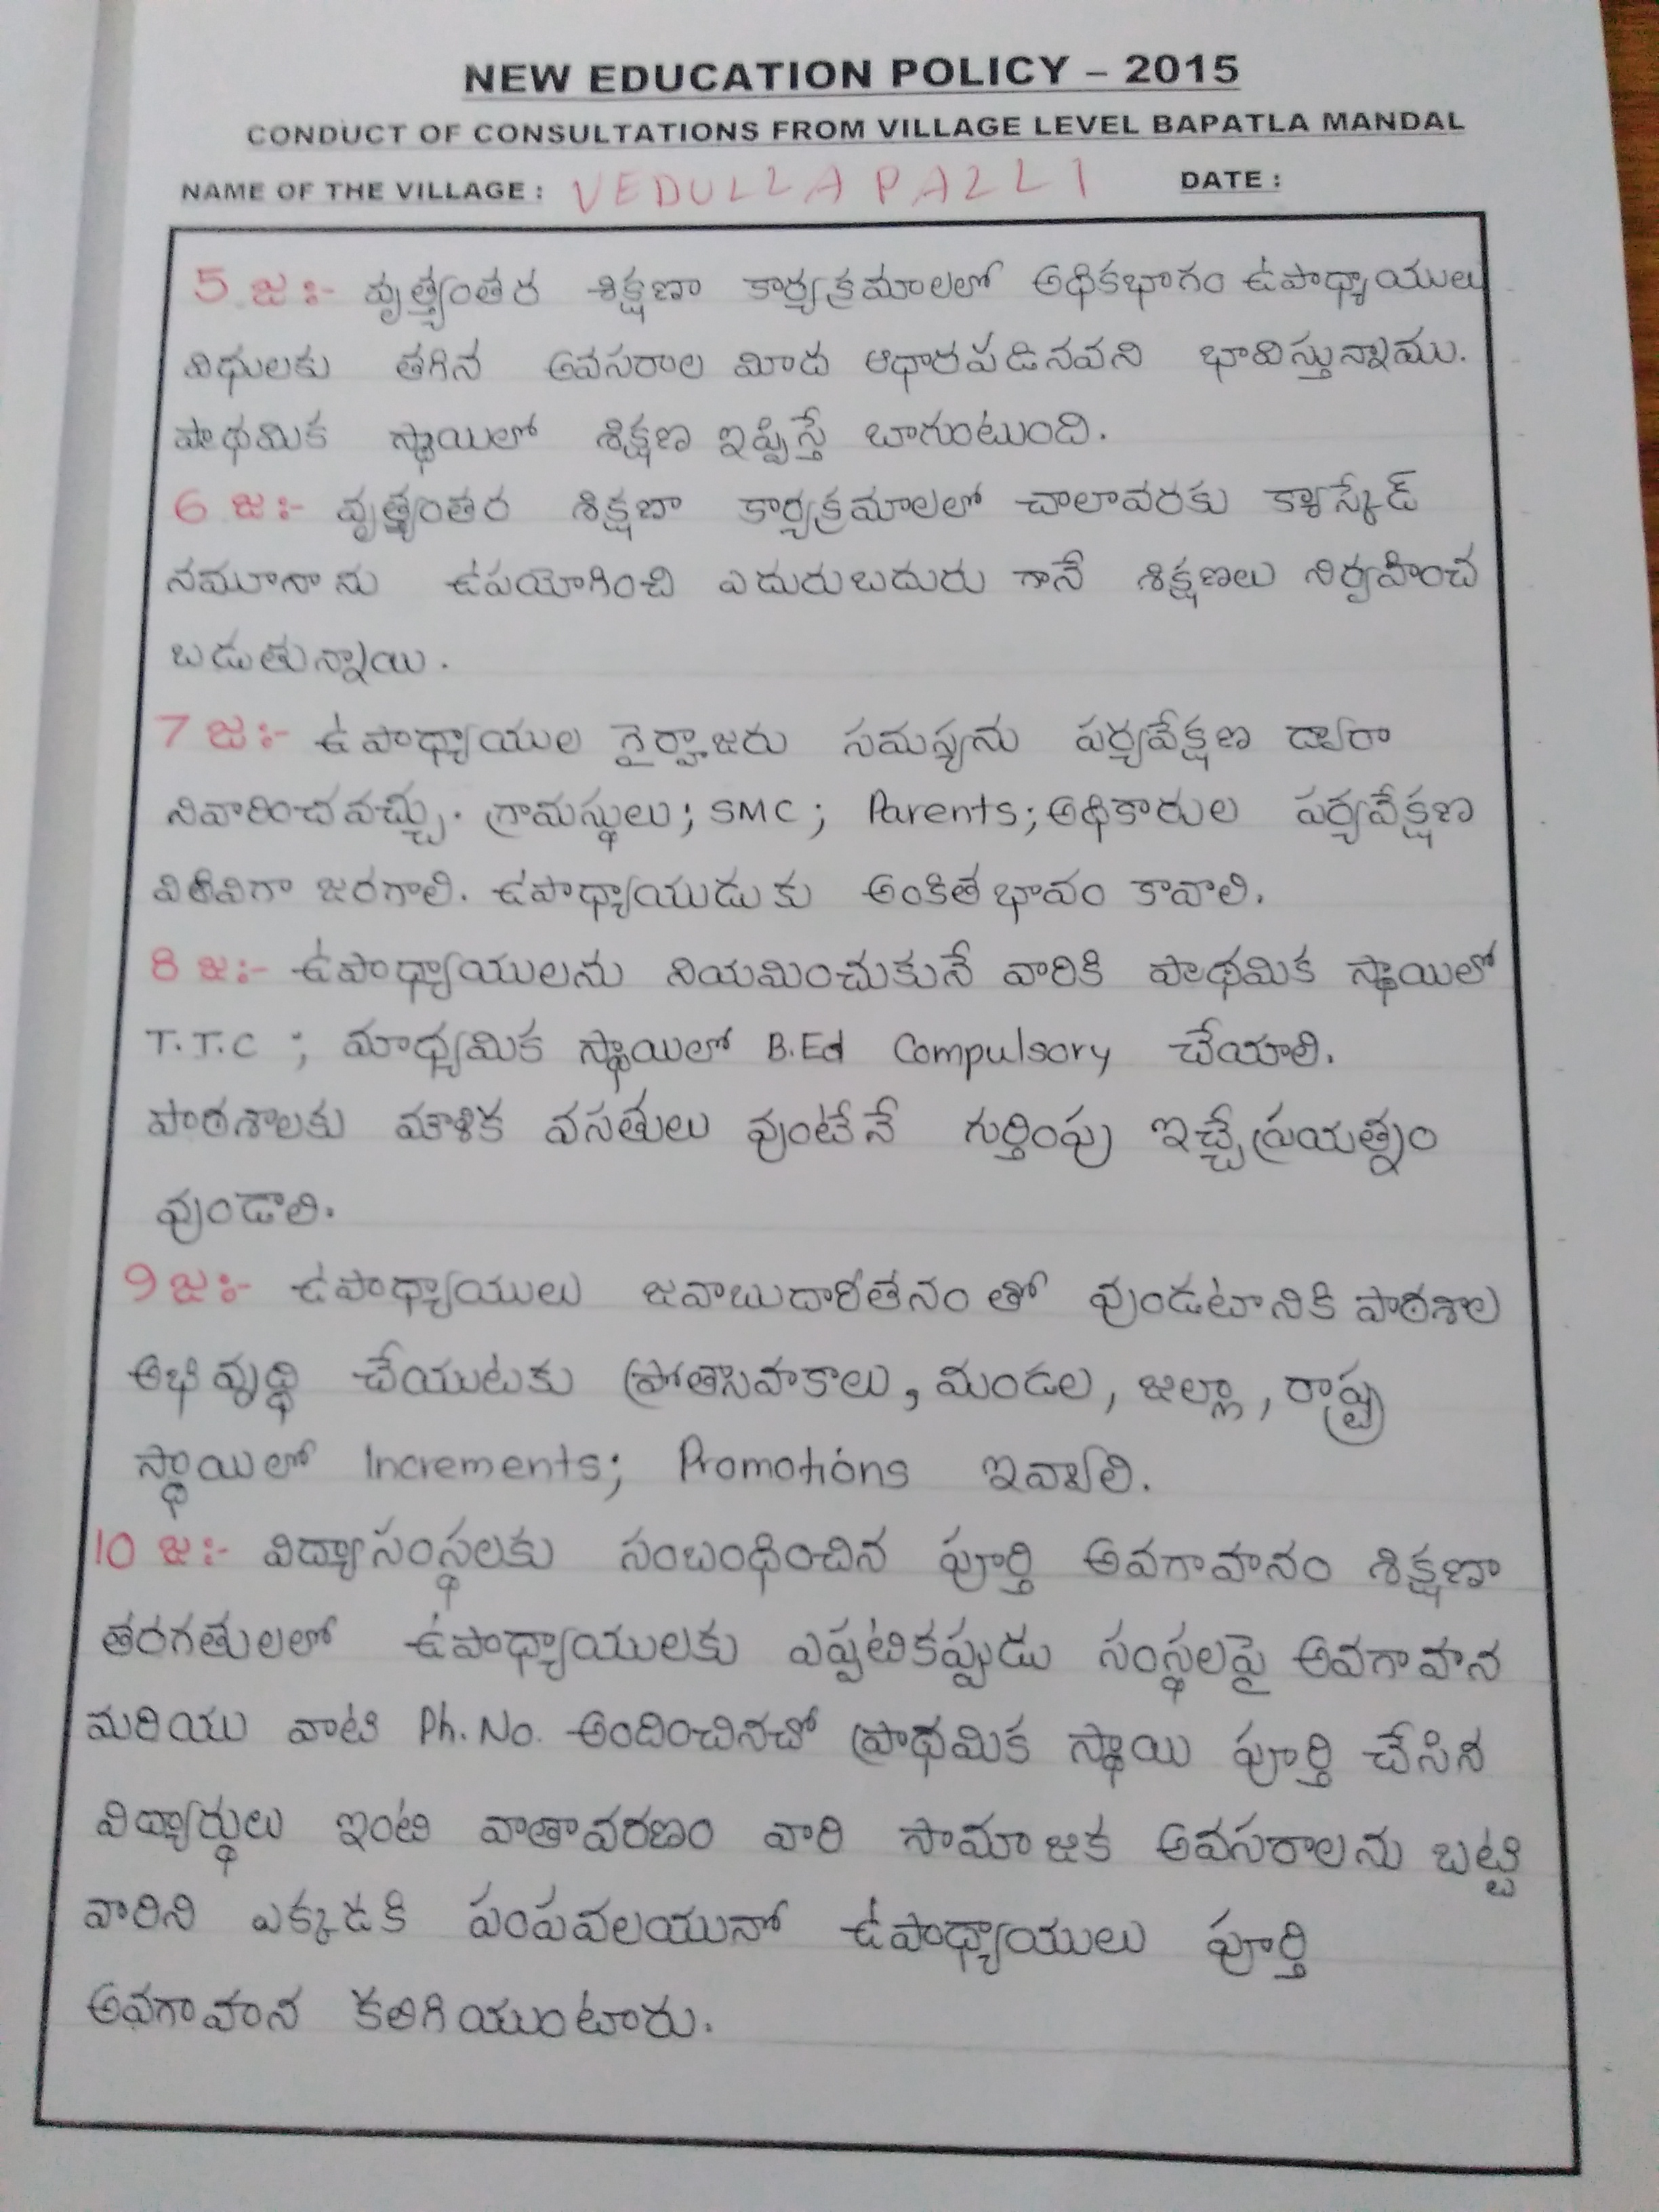 NEW EDUCATION POLICY – 2015
CONDUCT OF CONSULTATIONS FROM VILLAGE LEVEL BAPATLA MANDAL
NAME OF THE VILLAGE : VEDULLAPALLI DATE :
5 జ:- వృత్త్యంతర శిక్షణా కార్యక్రమాలలో అధికభాగం ఉపాధ్యాయులు
విధులకు తగిన అవసరాల మీద ఆధారపడినవని భావిస్తున్నాము.
ప్రాథమిక స్థాయిలో శిక్షణ ఇప్పిస్తే బాగుంటుంది.
6 జ:- వృత్త్యంతర శిక్షణా కార్యక్రమాలలో చాలావరకు క్యాస్కేడ్
నమూనాను ఉపయోగించి ఎదురుబదురు గానే శిక్షణలు నిర్వహించ
బడుతున్నాయి.
7 జ:- ఉపాధ్యాయుల గైర్హాజరు సమస్యను పర్యవేక్షణ ద్వారా
నివారించవచ్చు. గ్రామస్థులు; SMC; Parents; అధికారుల పర్యవేక్షణ
విరివిగా జరగాలి. ఉపాధ్యాయుడుకు అంకితభావం కావాలి.
8 జ:- ఉపాధ్యాయులను నియమించుకునే వారికి ప్రాథమిక స్థాయిలో
T.T.C ; మాధ్యమిక స్థాయిలో B.Ed Compulsory చేయాలి.
పాఠశాలకు మౌళిక వసతులు వుంటేనే గుర్తింపు ఇచ్చే ప్రయత్నం
వుండాలి.
9 జ:- ఉపాధ్యాయులు జవాబుదారీతనం తో వుండటానికి పాఠశాల
అభివృద్ధి చేయుటకు ప్రోత్సాహకాలు, మండల, జిల్లా, రాష్ట్ర
స్థాయిలో Increments; Promotions ఇవ్వాలి.
10 జ:- విద్యాసంస్థలకు సంబంధించిన పూర్తి అవగాహనం శిక్షణా
తరగతులలో ఉపాధ్యాయులకు ఎప్పటికప్పుడు సంస్థలపై అవగాహన
మరియు వాటి Ph. No. అందించినచో ప్రాథమిక స్థాయి పూర్తి చేసిన
విద్యార్థులు ఇంటి వాతావరణం వారి సామాజిక అవసరాలను బట్టి
వారిని ఎక్కడకి పంపవలయునో ఉపాధ్యాయులు పూర్తి
అవగాహన కలిగియుంటారు.